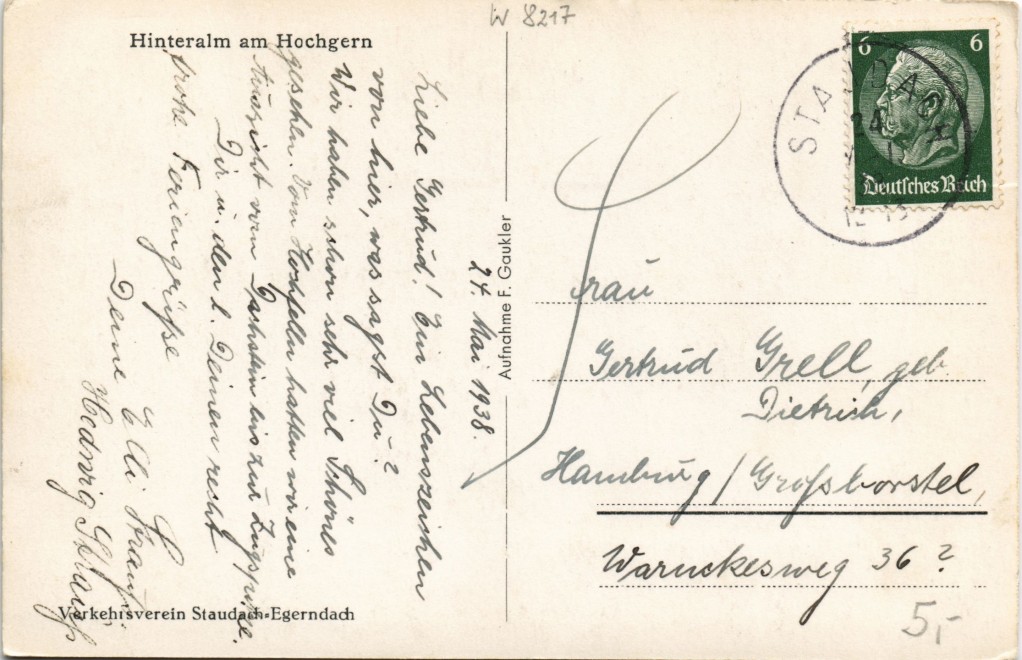 W 8217
Hinteralm am Hochgern
24. Mai 1938.
Liebe Gertrud! Ein Lebenszeichen
von hier, was sagst Du?
Wir haben schon sehr viel Schönes
gesehen. Vom Hochfelln hatten wir eine
Aussicht vom Dachstein bis zur Zugspitze.
Dir u. den l. Deinen recht
frohe Feriengrüße
Deine Elli Strauß
Hedwig Strauß
Verkehrsverein Staudach-Egerndach
Aufnahme F. Gaukler
6 6
Deutsches Reich
STAUDACH
24
Frau
Gertrud Grell, geb
Dietrich,
Hamburg/Großborstel,
Warnckesweg 36?
5,-